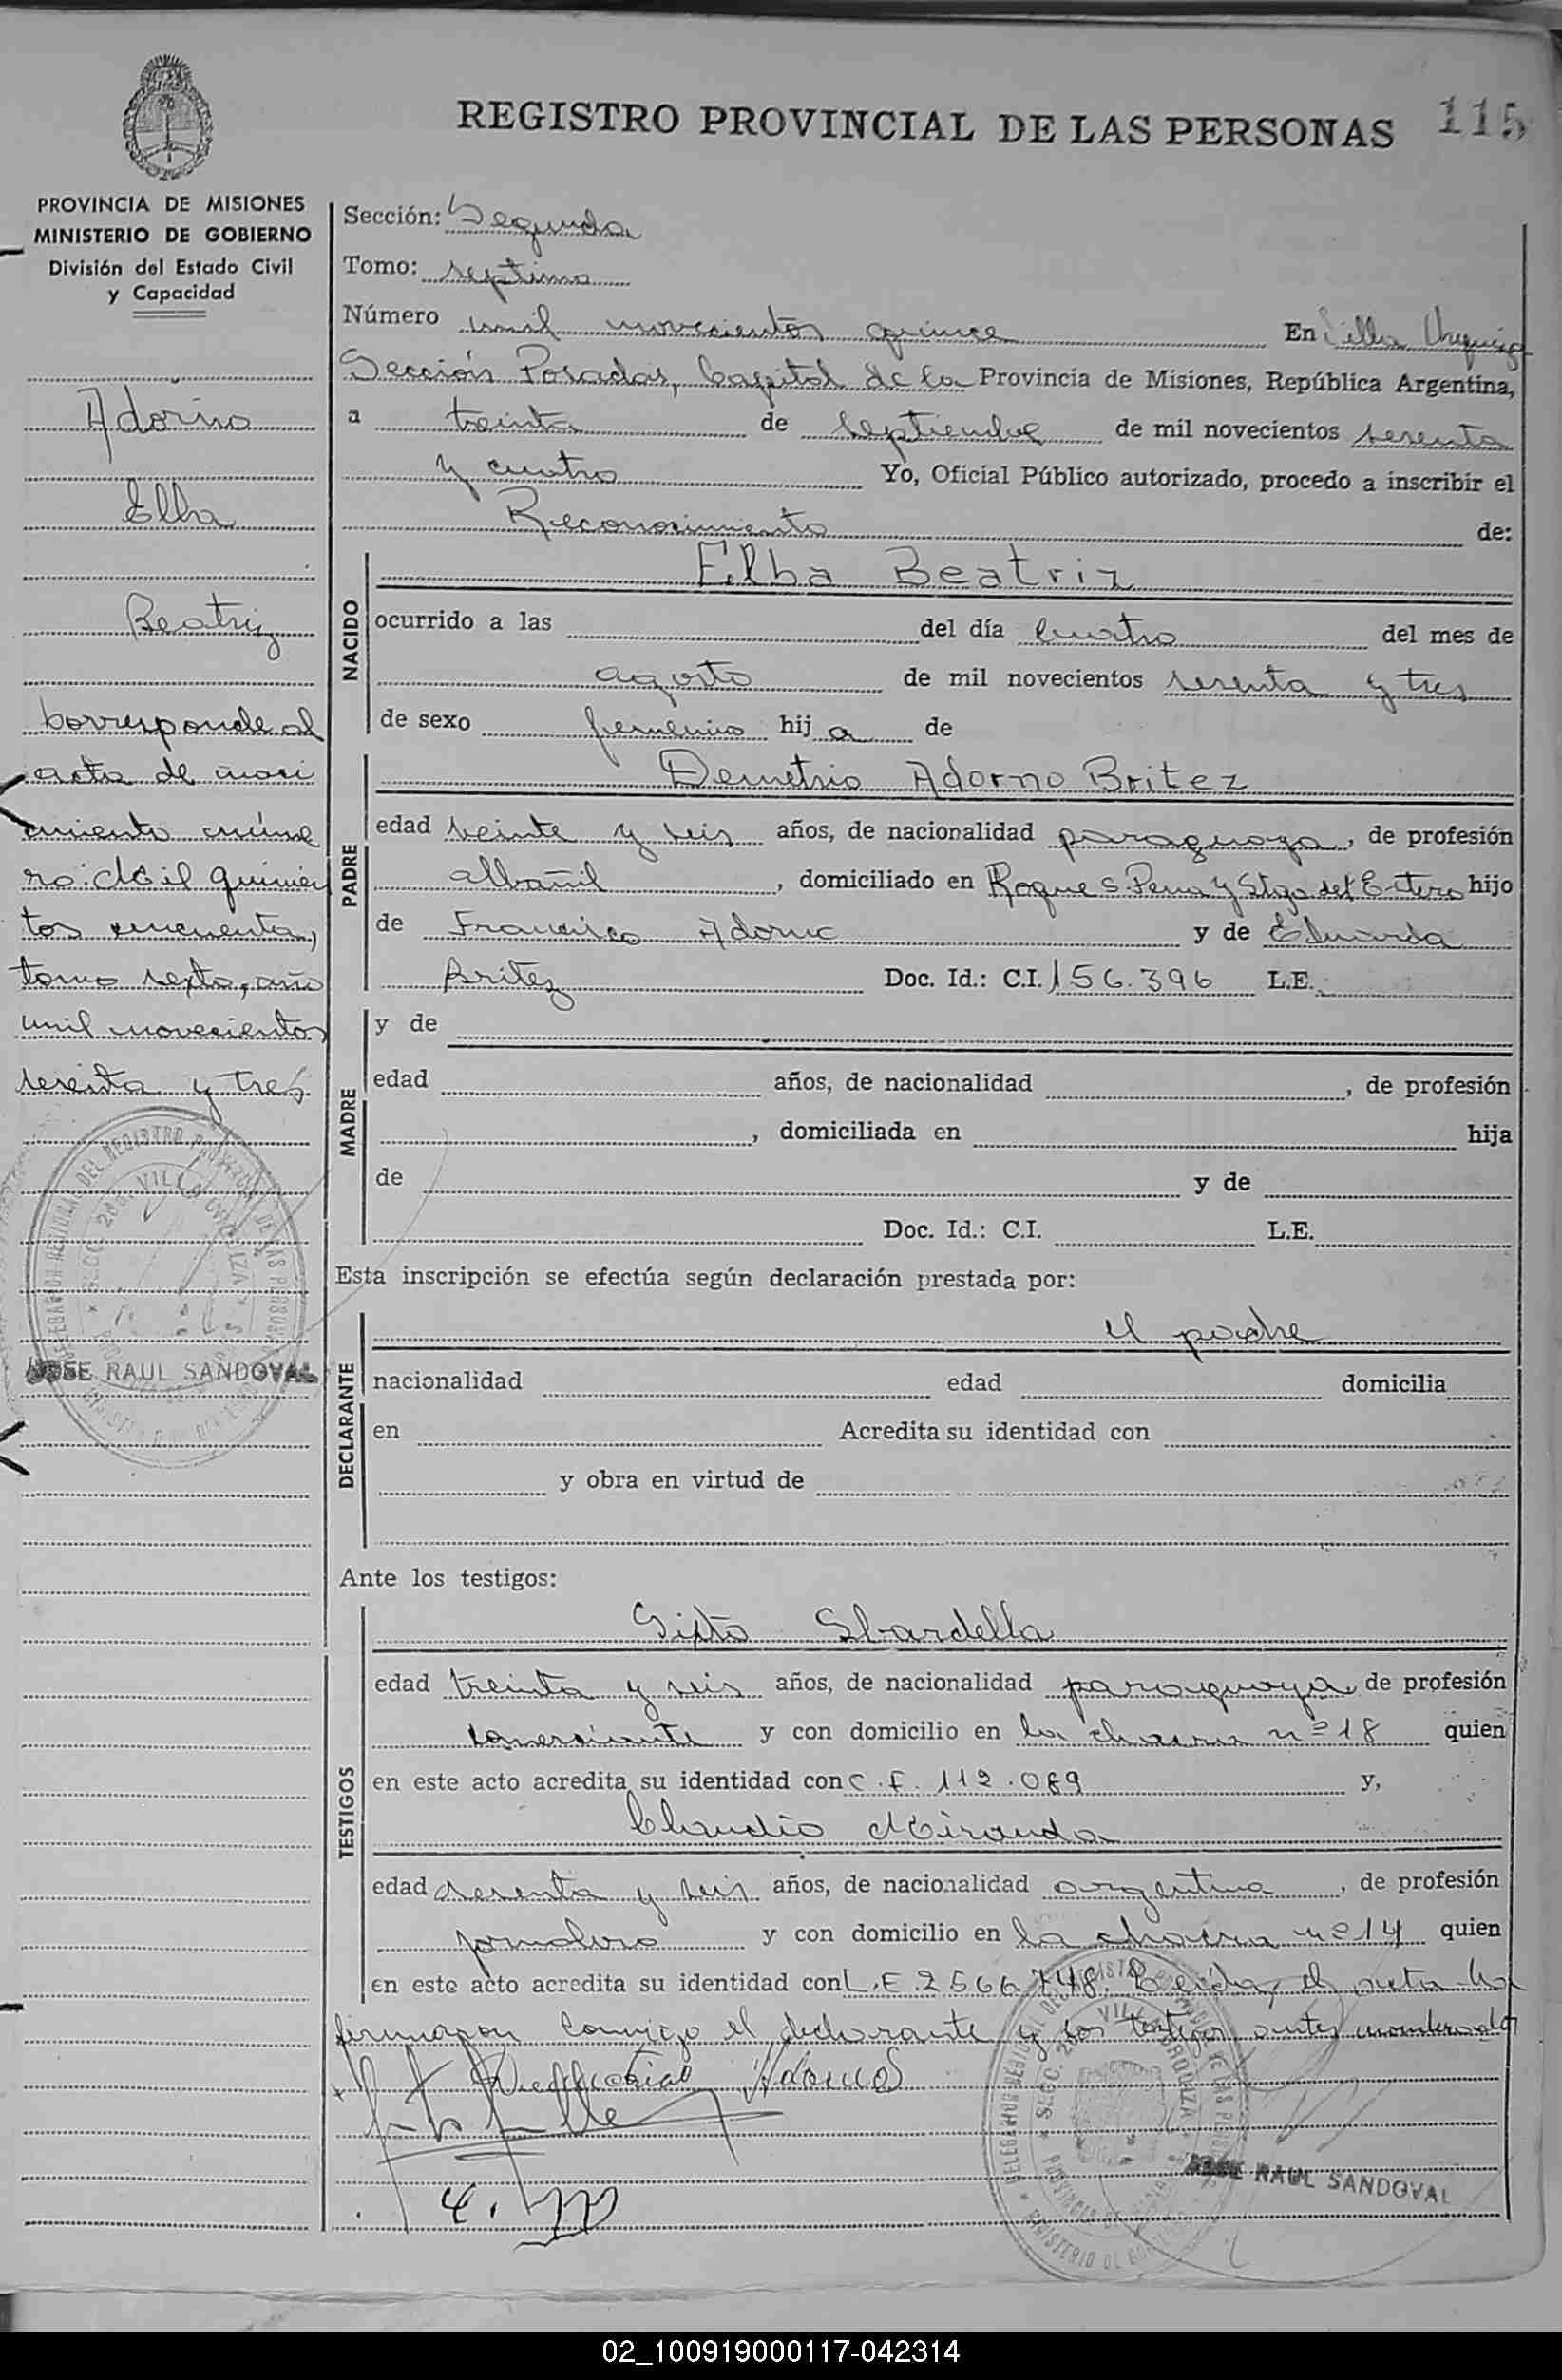 REGISTRO PROVINCIAL DE LAS PERSONAS 115
PROVINCIA DE MISIONES
MINISTERIO DE GOBIERNO
División del Estado Civil
y Capacidad
Adorno
Elba
Beatriz
Corresponde al
acta de naci
miento núme
ro: Mil quinien
tos cincuenta,
tomo sexto, año
mil novecientos
sesenta y tres
JOSE RAUL SANDOVAL
Sección: Segunda
Tomo: septimo
Número mil novecientos quince En Villa Urquiza
Sección Posadas, Capital de la Provincia de Misiones, República Argentina,
a treinta de Septiembre de mil novecientos sesenta
y cuatro Yo, Oficial Público autorizado, procedo a inscribir el
Reconocimiento de:
NACIDO
Elba Beatriz
ocurrido a las del día Cuatro del mes de
agosto de mil novecientos sesenta y tres
de sexo femenino hij a de
PADRE
Demetrio Adorno Britez
edad veinte y seis años, de nacionalidad paraguaya, de profesión
albañil, domiciliado en Roque S. Pena y Stgo del Estero hijo
de Francisco Adorno y de Eduarda
Britez Doc. Id.: C.I. 156.396 L.E.
MADRE
y de
edad años, de nacionalidad , de profesión
, domiciliada en hija
de y de
Doc. Id.: C.I. L.E.
Esta inscripción se efectúa según declaración prestada por:
DECLARANTE
el padre
nacionalidad edad domicilia
en Acredita su identidad con
y obra en virtud de
Ante los testigos:
TESTIGOS
Sixto Sbardella
edad treinta y seis años, de nacionalidad paraguaya de profesión
comerciante y con domicilio en la chacra nº 18 quien
en este acto acredita su identidad con 112.069 y,
Claudio Miranda
edad sesenta y seis años, de nacionalidad argentina, de profesión
jornalero y con domicilio en la chacra nº 14 quien
en este acto acredita su identidad con L.E. 2566748. Leida el acta la
firmaron conmigo el declarante y los testigos antes nombrados
Adorno
JOSE RAUL SANDOVAL
02_100919000117-042314